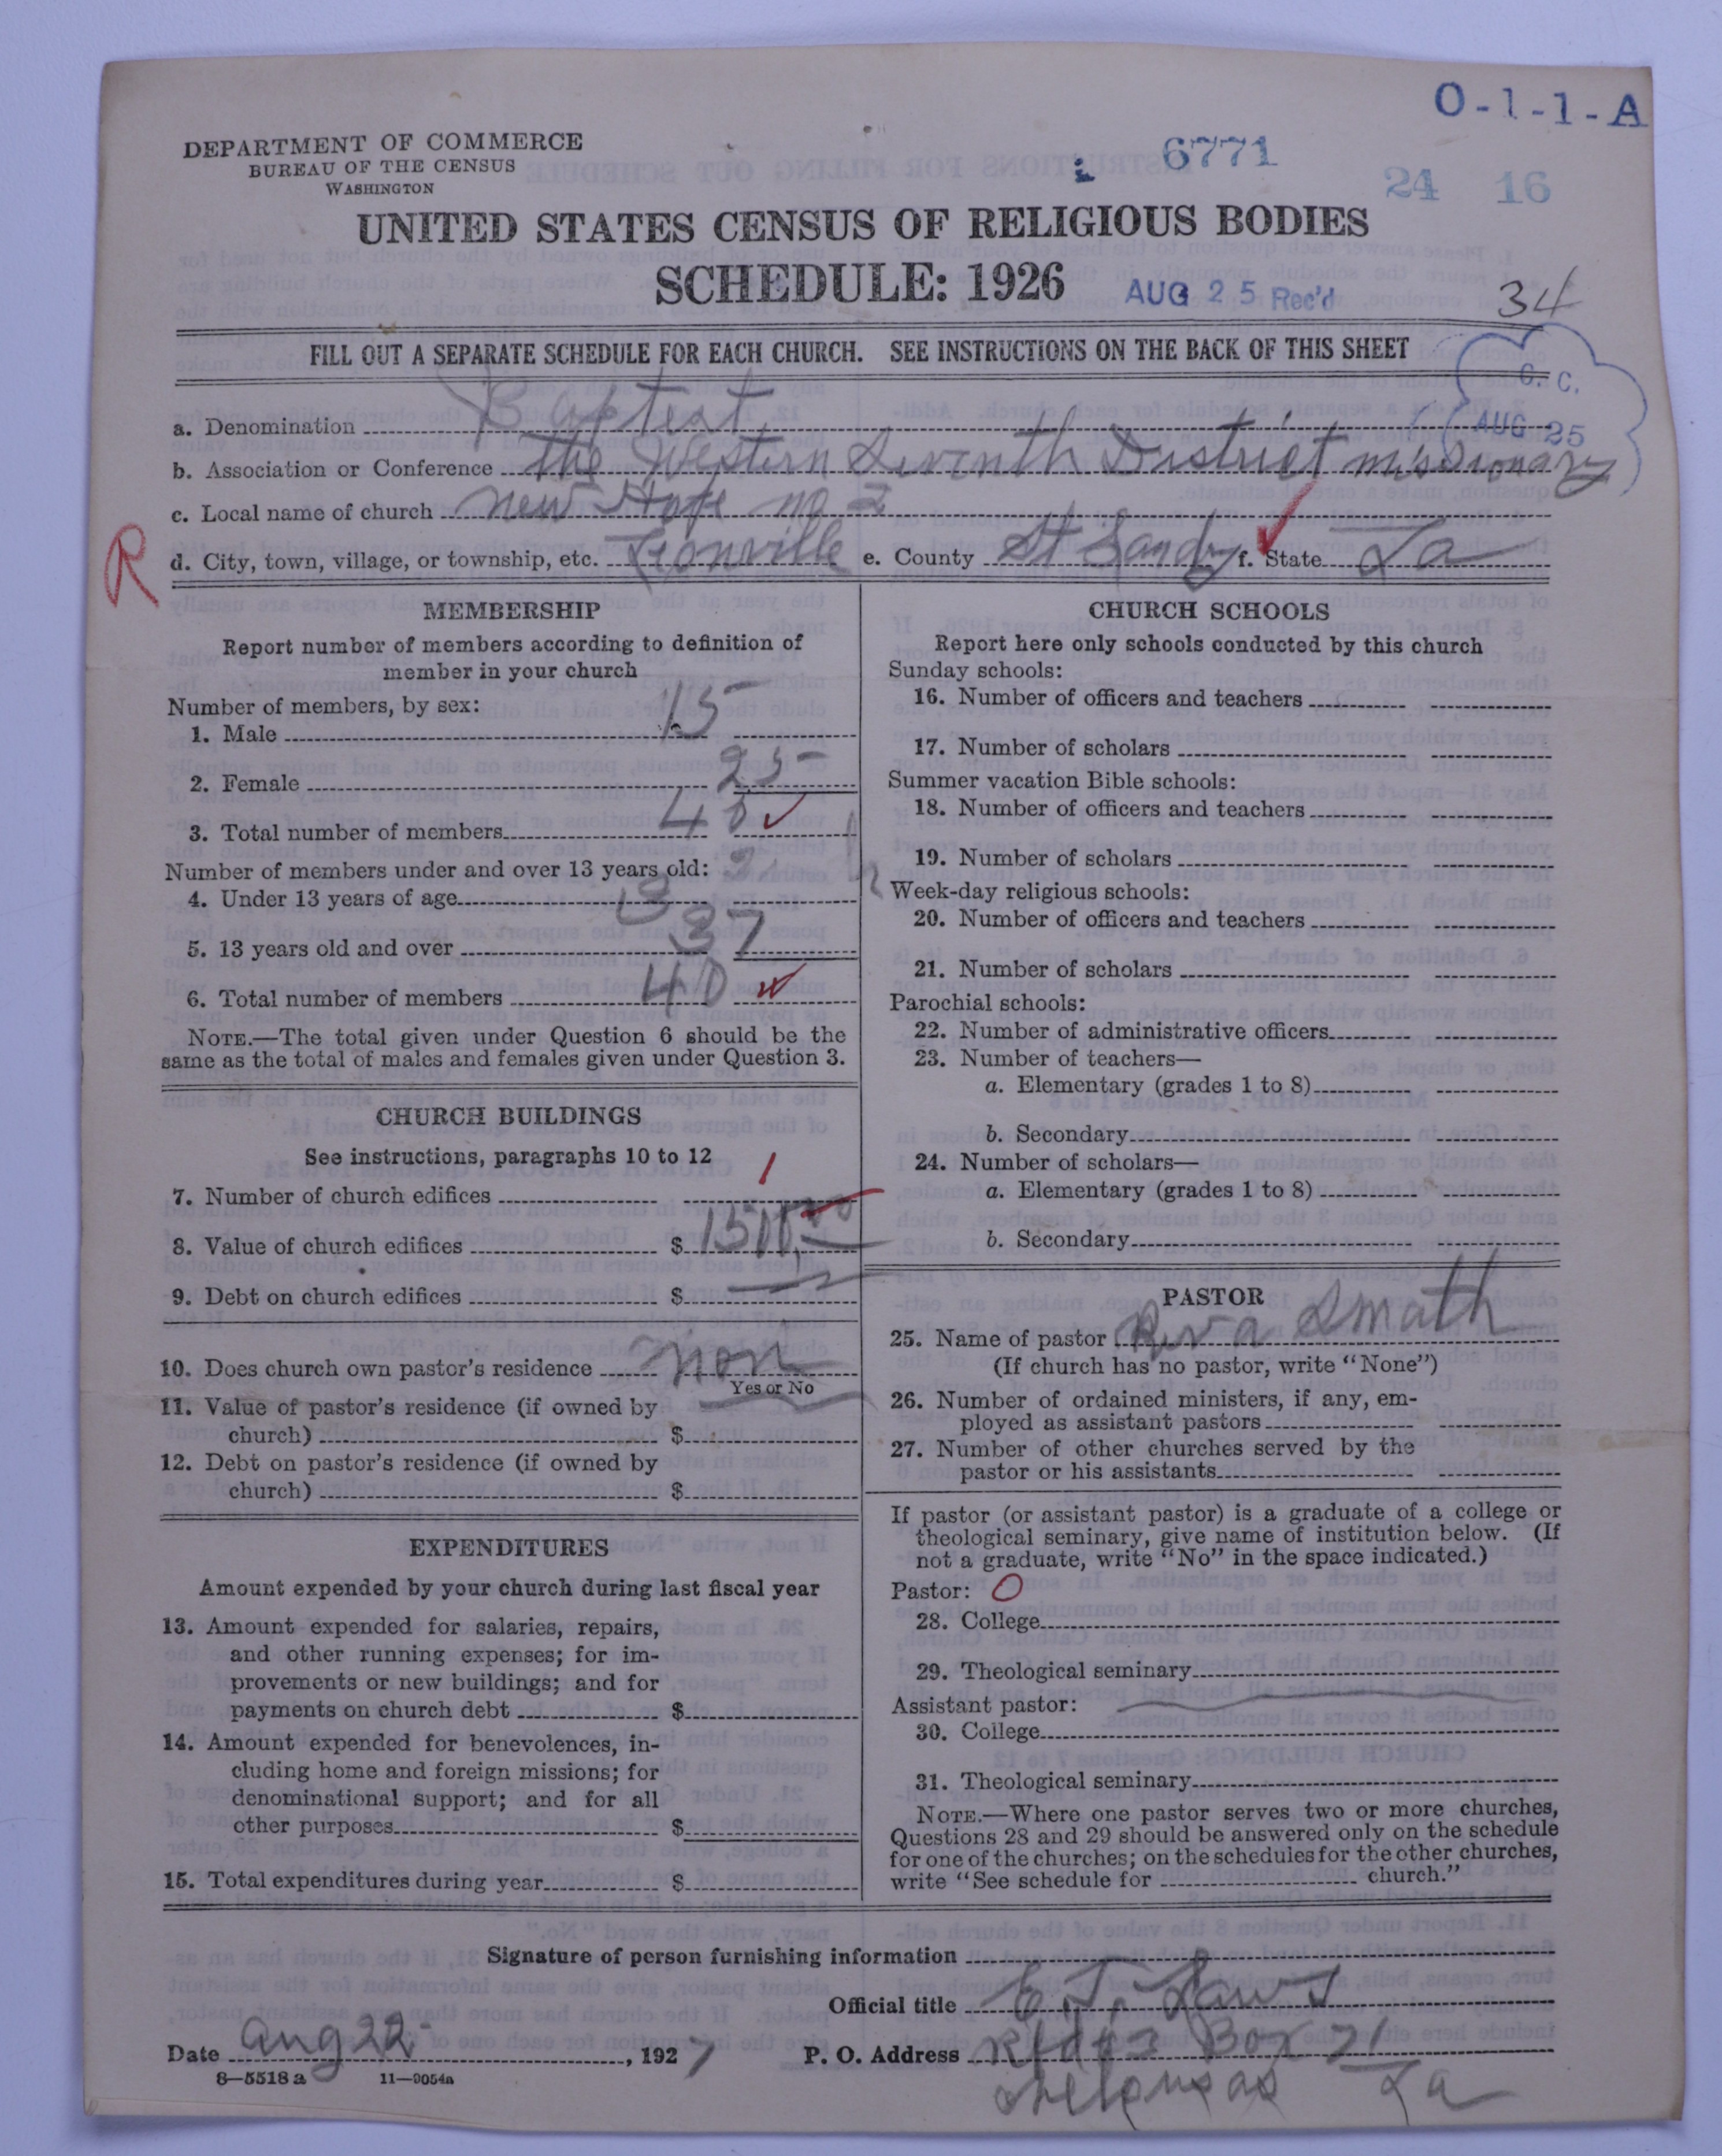 O-1-1-A
DEPARTMENT OF COMMERCE
BUREAU OF THE CENSUS
WASHINGTON
6771
24 16
UNITED STATES CENSUS OF RELIGIOUS BODIES
SCHEDULE: 1926
AUG 25 Rec'd
34
FILL OUT A SEPARATE SCHEDULE FOR EACH CHURCH. SEE INSTRUCTIONS ON THE BACK OF THIS SHEET
C. C.
AUG 25
a. Denomination Baptest
b. Association or Conference the Western Seventh District missionary
c. Local name of church new Hope no 2
R
d. City, town, village, or township, etc. Leonville e. County St Landry f. State La
MEMBERSHIP
Report number of members according to definition of
member in your church
Number of members, by sex:
1. Male 15
2. Female 25
3. Total number of members 40
Number of members under and over 13 years old: 3
4. Under 13 years of age 3
5. 13 years old and over 37
6. Total number of members 40
NOTE.—The total given under Question 6 should be the
same as the total of males and females given under Question 3.
CHURCH BUILDINGS
See instructions, paragraphs 10 to 12
7. Number of church edifices 1
8. Value of church edifices $
9. Debt on church edifices $
10. Does church own pastor's residence non
Yes or No
11. Value of pastor's residence (if owned by
church) $
12. Debt on pastor's residence (if owned by
church) $
EXPENDITURES
Amount expended by your church during last fiscal year
13. Amount expended for salaries, repairs,
and other running expenses; for im-
provements or new buildings; and for
payments on church debt $
14. Amount expended for benevolences, in-
cluding home and foreign missions; for
denominational support; and for all
other purposes $
15. Total expenditures during year $
CHURCH SCHOOLS
Report here only schools conducted by this church
Sunday schools:
16. Number of officers and teachers
17. Number of scholars
Summer vacation Bible schools:
18. Number of officers and teachers
19. Number of scholars
Week-day religious schools:
20. Number of officers and teachers
21. Number of scholars
Parochial schools:
22. Number of administrative officers
23. Number of teachers—
a. Elementary (grades 1 to 8)
b. Secondary
24. Number of scholars—
a. Elementary (grades 1 to 8)
b. Secondary
PASTOR
25. Name of pastor Rev a Smath
(If church has no pastor, write "None")
26. Number of ordained ministers, if any, em-
ployed as assistant pastors
27. Number of other churches served by the
pastor or his assistants
If pastor (or assistant pastor) is a graduate of a college or
theological seminary, give name of institution below. (If
not a graduate, write "No" in the space indicated.)
Pastor: O
28. College
29. Theological seminary
Assistant pastor:
30. College
31. Theological seminary
NOTE.—Where one pastor serves two or more churches,
Questions 28 and 29 should be answered only on the schedule
for one of the churches; on the schedules for the other churches,
write "See schedule for church."
Signature of person furnishing information
Official title E. J. Laws
Date aug 22, 1927 P. O. Address Box 71
La
8—5518 a 11—9054a